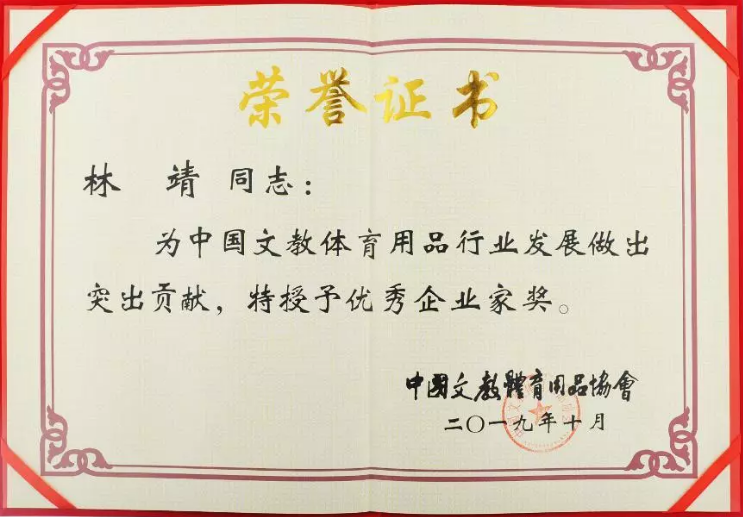 荣誉证书
林 靖 同志：
为中国文教体育用品行业发展做出
突出贡献，特授予优秀企业家奖。
中國文教體育用品協會
二〇一九年十月